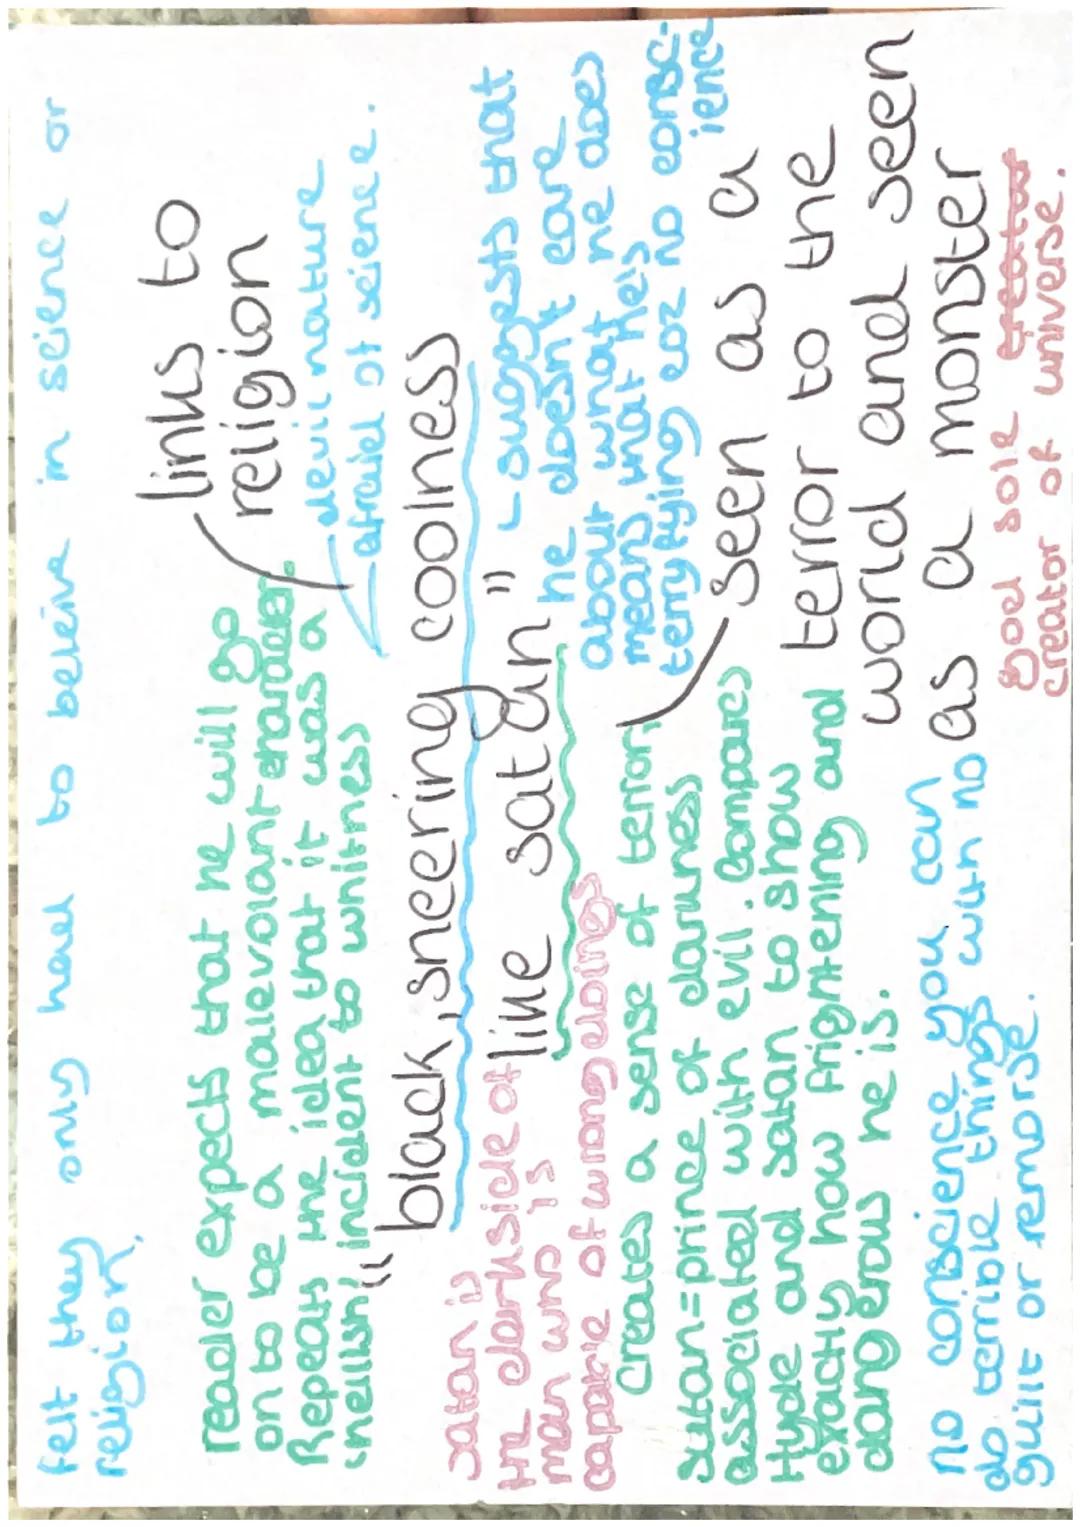 felt they only had to beleive in science or
religion.
links to
religion
devil nature
afraid of science.
reader expects that he will go
on to be a malevolant character.
Repeats the idea that it was a
'hellish' incident to whitness
"black, sneering coolness
like satan"
- suggests that
he doesnt care
about what he does
means that he's
terryfying coz no consc-
ience
satan is
the darkside of
man who is
capable of wrong doings
creates a sense of terror,
satan = prince of darkness
associated with evil. compares
Hyde and satan to show
exactly how frightening and
dangerous he is.
seen as a
terror to the
world and seen
as a monster
no conscience you can
do terrible things with no
guilt or remorse.
god sole creator
creator of universe.